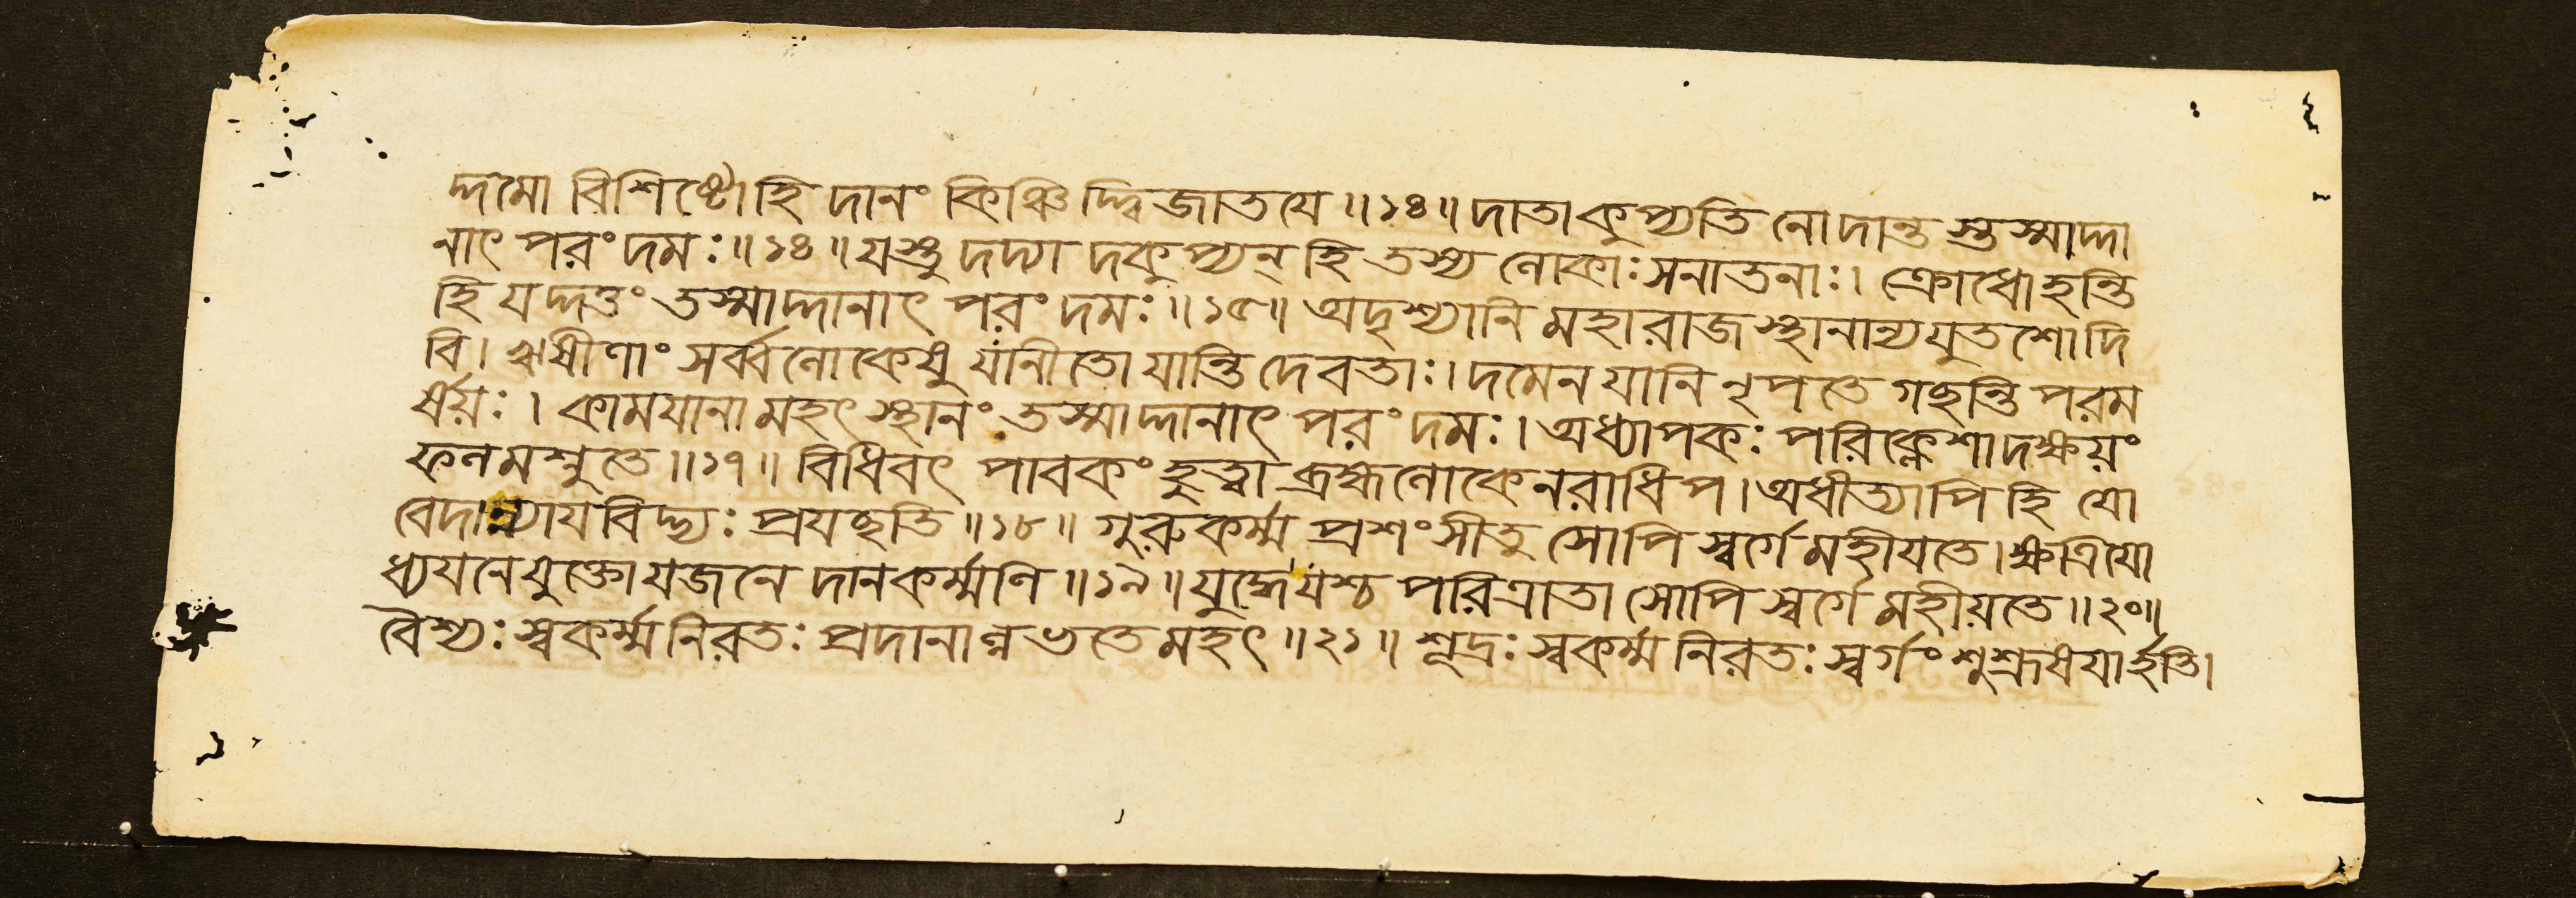 দ্দমো বিশিষ্টোহি দানং কিঞ্চিদ্দ্বিজাতযে ॥১৪॥ দাতা কুপ্যতি নোদান্ত স্তস্মাদ্দা
নাৎ পরং দমঃ ॥১৪॥ যস্তু দদ্যা দকুপ্যন্ হি তস্য লোকাঃ সনাতনাঃ। ক্রোধোহন্তি
হি যদ্দত্তং তস্মাদ্দানাৎ পরং দমঃ ॥১৫॥ অদৃশ্যানি মহারাজ স্থানান্যযুতশো দি
বি। ঋষীণাং সর্ব্বলোকেষু যানীতো যান্তি দেবতাঃ। দমেন যানি নৃপতে গছন্তি পরম
র্ষয়ঃ। কাময়ানা মহৎ স্থানং তস্মাদ্দানাৎ পরং দমঃ। অধ্যাপকঃ পরিক্লেশাদক্ষয়ং
ফলমশ্নুতে ॥১৭॥ বিধিবৎ পাবকং হুত্বা ব্রহ্মলোকে নরাধিপ। অধীত্যাপি হি যো
বেদান্ন্যায বিদ্ভ্যঃ প্রযছতি ॥১৮॥ গুরুকর্ম্ম প্রশংসীতু সোপি স্বর্গে মহীযতে। ক্ষত্রিযো
ধ্যযনে যুক্তো যজনে দানকর্ম্মণি ॥১৯॥ যুদ্ধে যশ্চ পরিত্রাতা সোপি স্বর্গে মহীয়তে ॥২০॥
বৈশ্যঃ স্বকর্ম্মনিরতঃ প্রদানাল্লভতে মহৎ ॥২১॥ শূদ্রঃ স্বকর্ম্মনিরতঃ স্বর্গং শুশ্রূষযার্হতি।